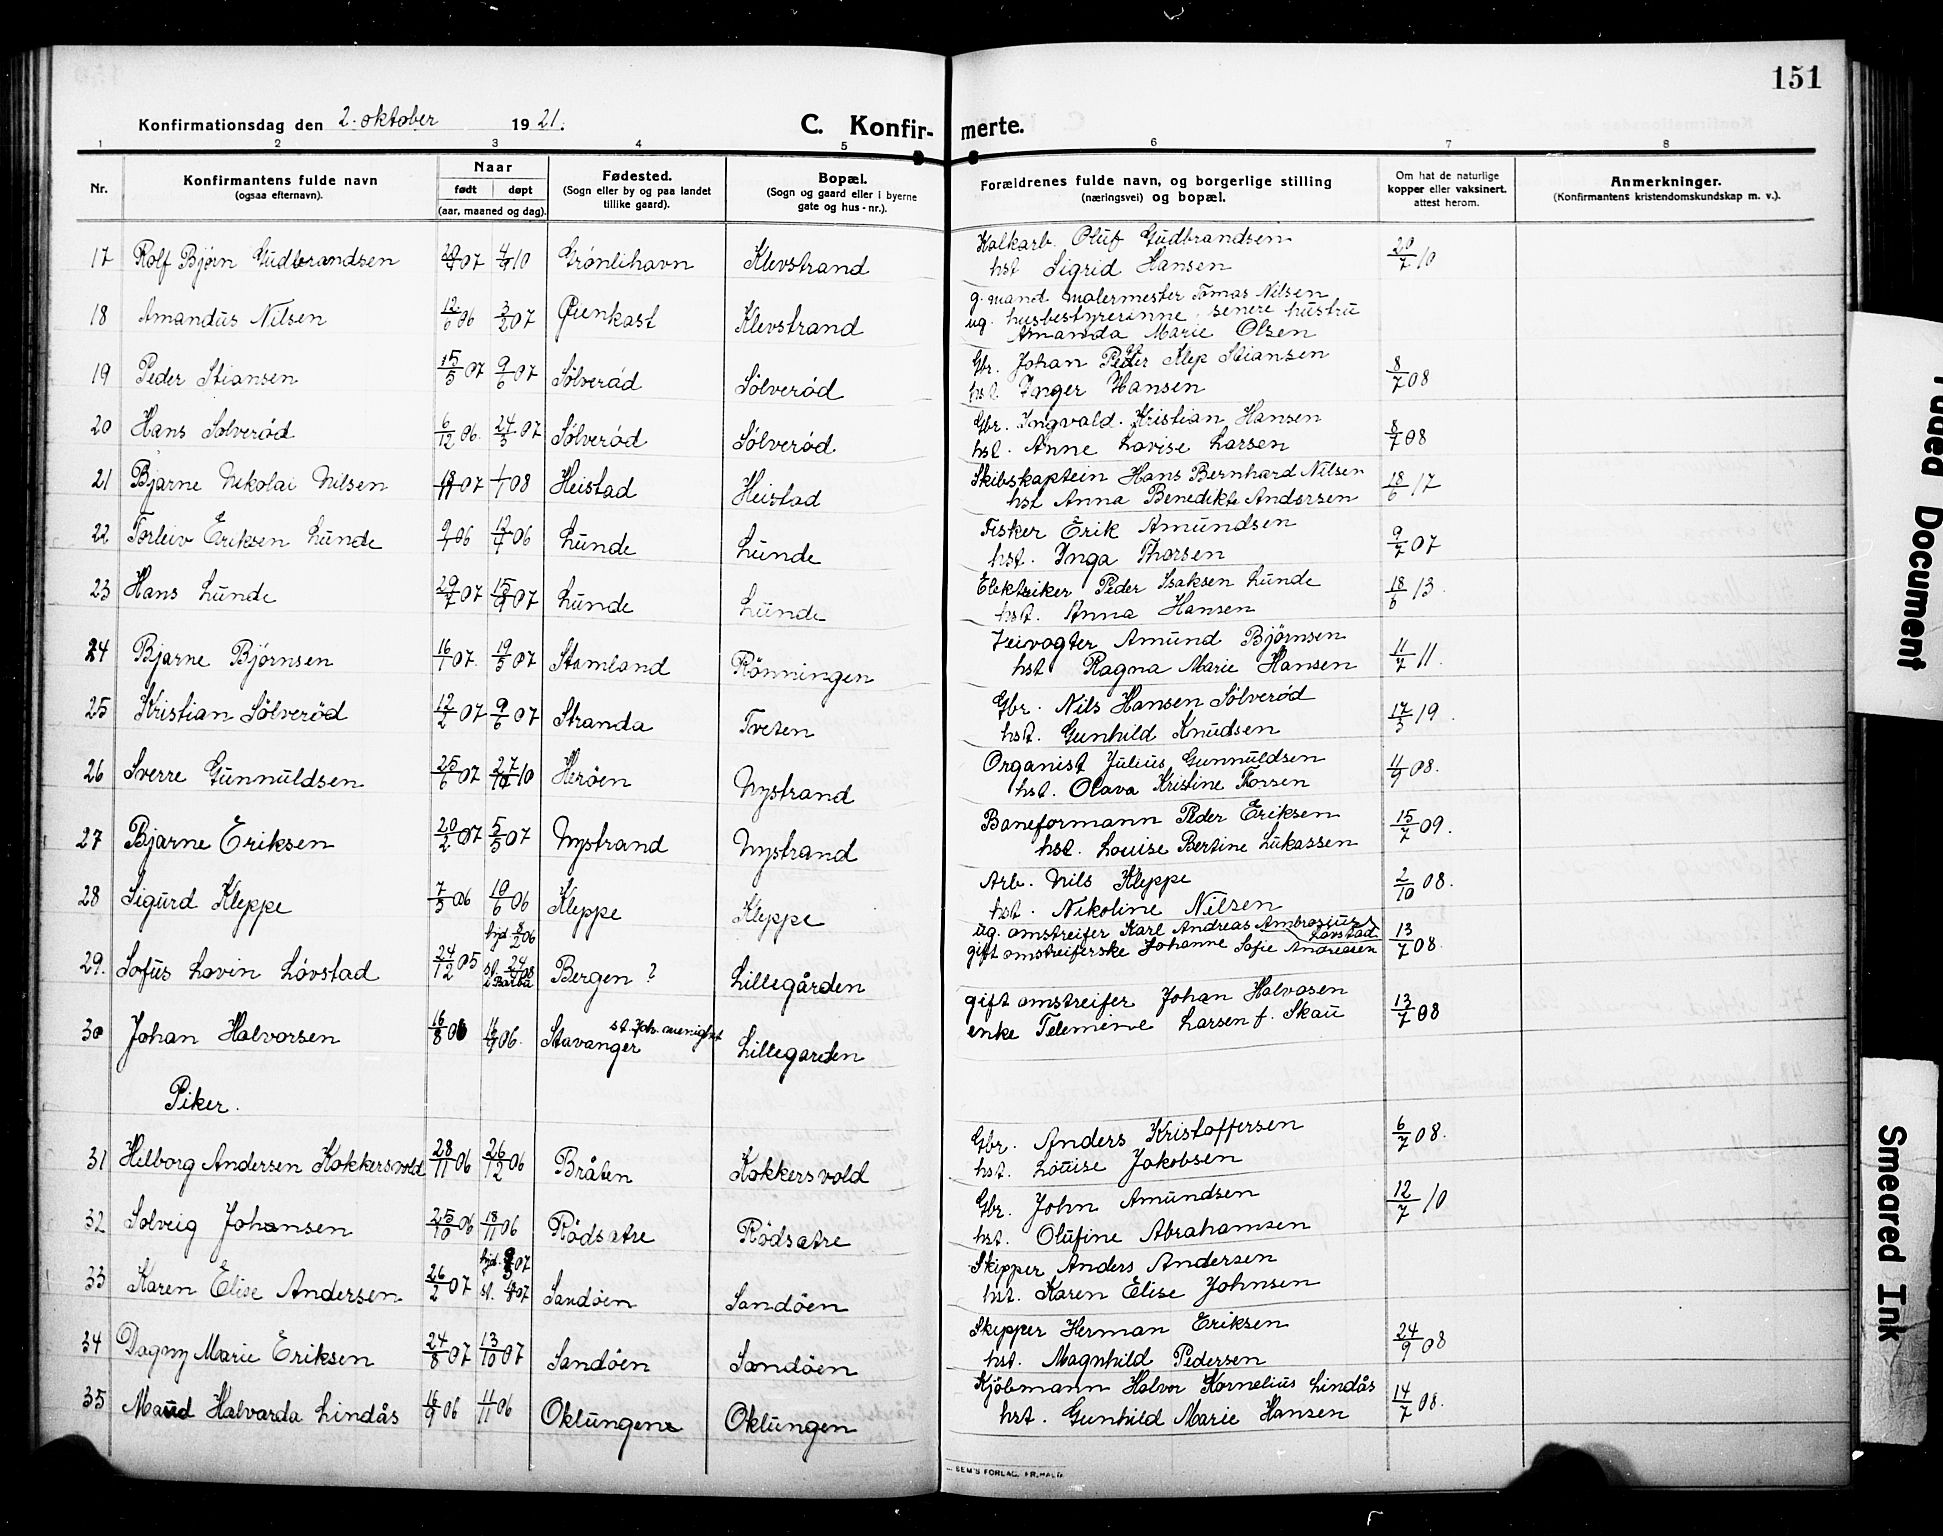 151
Konfirmationsdag den 2. oktober 1921.
C. Konfirmerte.
1 2 3 4 5 6 7 8
Nr. Konfirmantens fulde navn (ogsaa efternavn). Naar født døpt (aar, maaned og dag). Fødested. (Sogn eller by og paa landet tillike gaard). Bopæl. (Sogn og gaard eller i byerne gate og hus-nr.). Forældrenes fulde navn, og borgerlige stilling (næringsvei) og bopæl. Om hat de naturlige kopper eller vaksinert. attest herom. Anmerkninger. (Konfirmantens kristendomskundskap m. v.).
17 Rolf Bjørn Gudbrandsen 07 10 Grønlihavn Klevstrand Kalkarb. Oluf Gudbrandsen 20/7 10
hst Sigrid Hansen
18 Amandus Nilsen 12/6 06 3/2 07 Øienkast Klevstrand g. mand malermester Tomas Nilsen
ug. husbestyrerinne, senere hustru
Amanda Marie Olsen
19 Peder Stiansen 15/5 07 9/6 07 Sølverød Sølverød Gbr. Johan Peder Klep Stiansen 8/7 08
hst. Inger Hansen
20 Hans Sølverød 6/12 06. 24/3 07 Sølverød Sølverød Gbr. Ingvald Kristian Hansen 8/7 08
hst. Anne Lovise Larsen
21 Bjarne Nikolai Nilsen 07 1/1 08 Heistad Heistad Skibskaptein Hans Bernhard Nilsen 18/6 17
hst Anna Benedikte Andersen
22 Torleiv Eriksen Lunde 06 06 Lunde Lunde Fisker Erik Amundsen 9/7 07
hst. Inga Thorsen
23 Hans Lunde 29/7 07 07 Lunde Lunde Elektriker Peder Isaksen Lunde 18/6 13.
hst. Anna Hansen
24 Bjarne Bjørnsen 16/1 07. 19/5 07 Stamland Rønningen Veivogter Amund Bjørnsen 11/7 11.
hst Ragna Marie Hansen
25 Kristian Sølverød 12/2 07 9/6 07 Stranda Tveten Gbr. Nils Hansen Sølverød 17/3 19.
hst. Gunhild Knudsen
26 Sverre Gunnuldsen 25/6 07 27/10 10 Herøen Nystrand Organist Julius Gunnuldsen 11/9 08.
hst. Olava Kristine Torsen
27 Bjarne Eriksen 20/2 07 5/5 07 Nystrand Nystrand Baneformann Peder Eriksen 15/7 09.
hst. Louise Bertine Lukassen
28 Sigurd Kleppe 7/3 06 10/6 06 Kleppe Kleppe Arb. Nils Kleppe 2/10 08.
hst. Nikoline Nilsen
29. Sofus Lavin Løvstad 24/12 05 hjd 06 st. 24/ 08 i Bergen ? Lillegården ug. omstreifer Karl Andreas Ambrosiussen Lovstad 13/7 08.
gift omstreiferske Johanne Sofie Andreasen
30 Johan Halvorsen 16/8 06 06. Stavanger st. Joh. menighet Lillegarden gift omstreifer Johan Halvosen 13/7 08
enke Telemine Larsen f. Skau
Piker.
31 Helborg Andersen Kokkersvold 28/11 06 26/12 06 Bråten Kokkersvold Gbr. Anders Kristoffersen 6/7 08.
hst. Louise Jakobsen
32 Solveig Johansen 25/10 06 18/11 06 Rødsætre Rødsætre Gbr. John Amundsen 12/7 10
hst. Olufine Abrahamsen
33 Karen Elise Andersen 26/2 07 hjd. 07 st. 07 Sandøen Sandøen Skipper Anders Andersen
hst. Karen Elise Johnsen
34 Dagny Marie Eriksen 24/8 07 13/10 07 Sandøen Sandøen Skipper Herman Eriksen 24/9 08
hst. Magnhild Pedersen
35 Maud Halvarda Lindås 16/9 06 11/11 06 Oklungene Oklungen Kjøbmann Halvor Kornelius Lindås 14/7 08.
hst. Gunhild Marie Hansen
SEM'S FORLAG, FR.HALD.
Faded Document
Smeared Ink